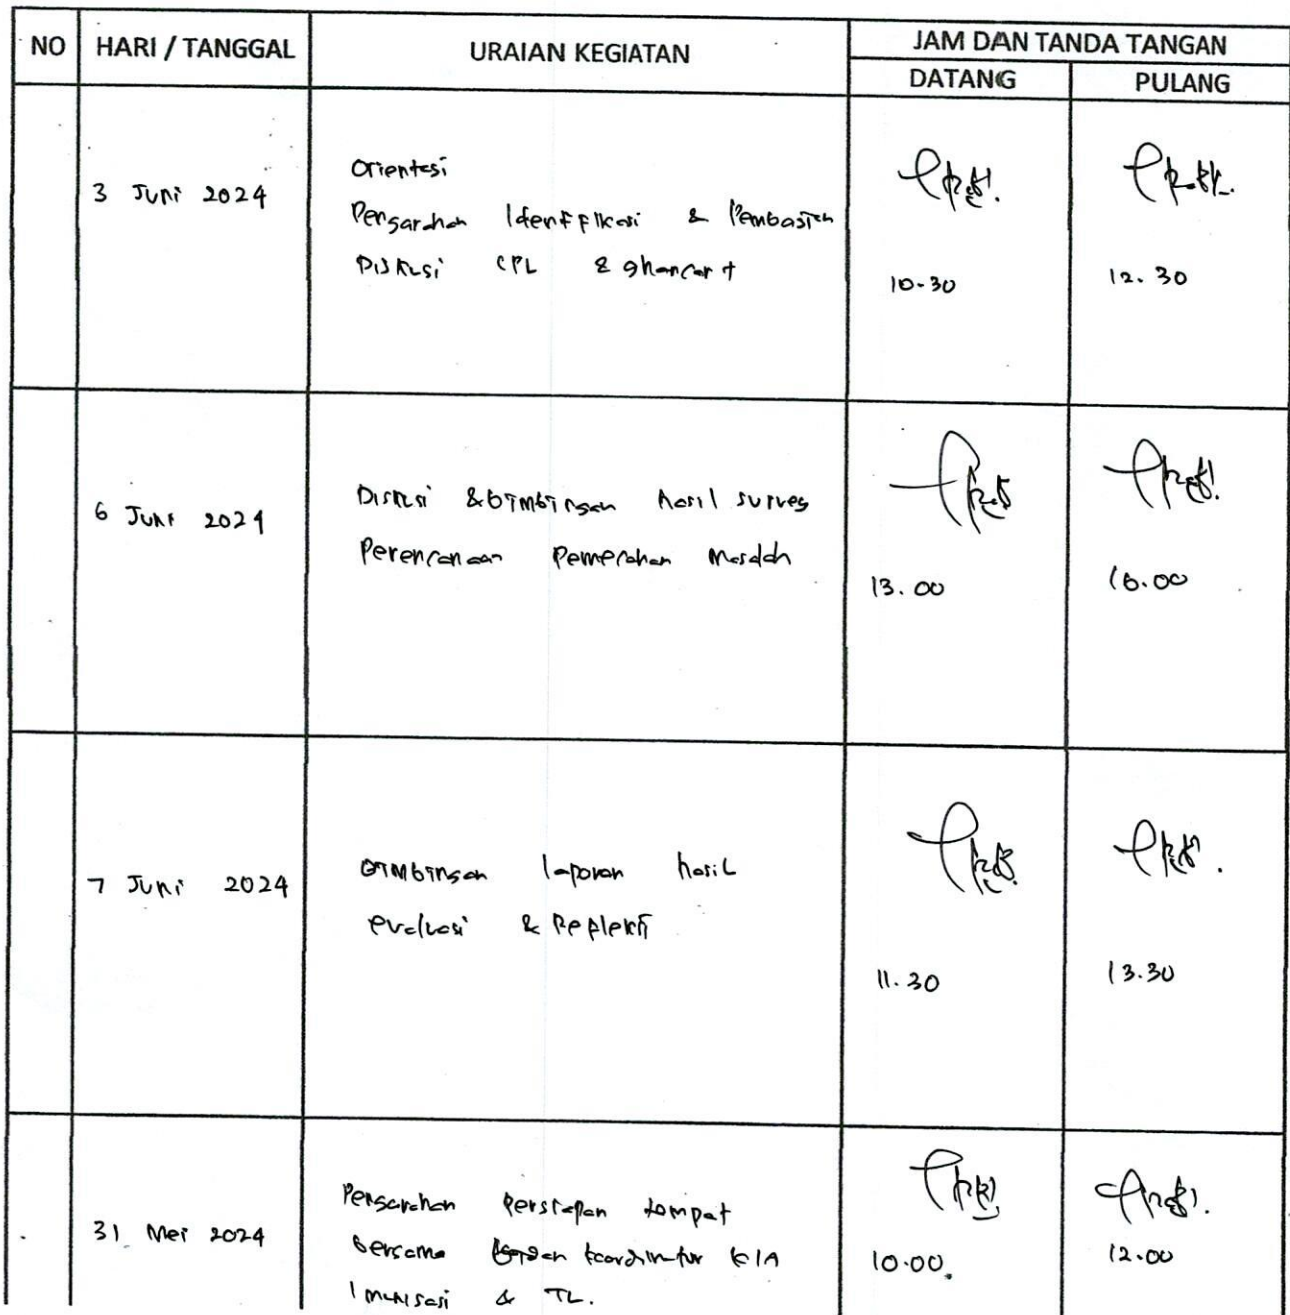 NO HARI / TANGGAL URAIAN KEGIATAN JAM DAN TANDA TANGAN
DATANG PULANG
3 Juni 2024
Orientasi
Pengarahan Identifikasi & Pembagian
Diskusi CPL & ghancart
10.30 12.30
6 Juni 2024
Diskusi & bimbingan hasil survey
Perencanaan Pemecahan Masalah
13.00 16.00
7 Juni 2024
Bimbingan laporan hasil
evaluasi & Refleksi
11.30 13.30
31 Mei 2024
Pengarahan persiapan tempat
bersama koordinator KIA
Imunisasi & TL.
10.00 12.00